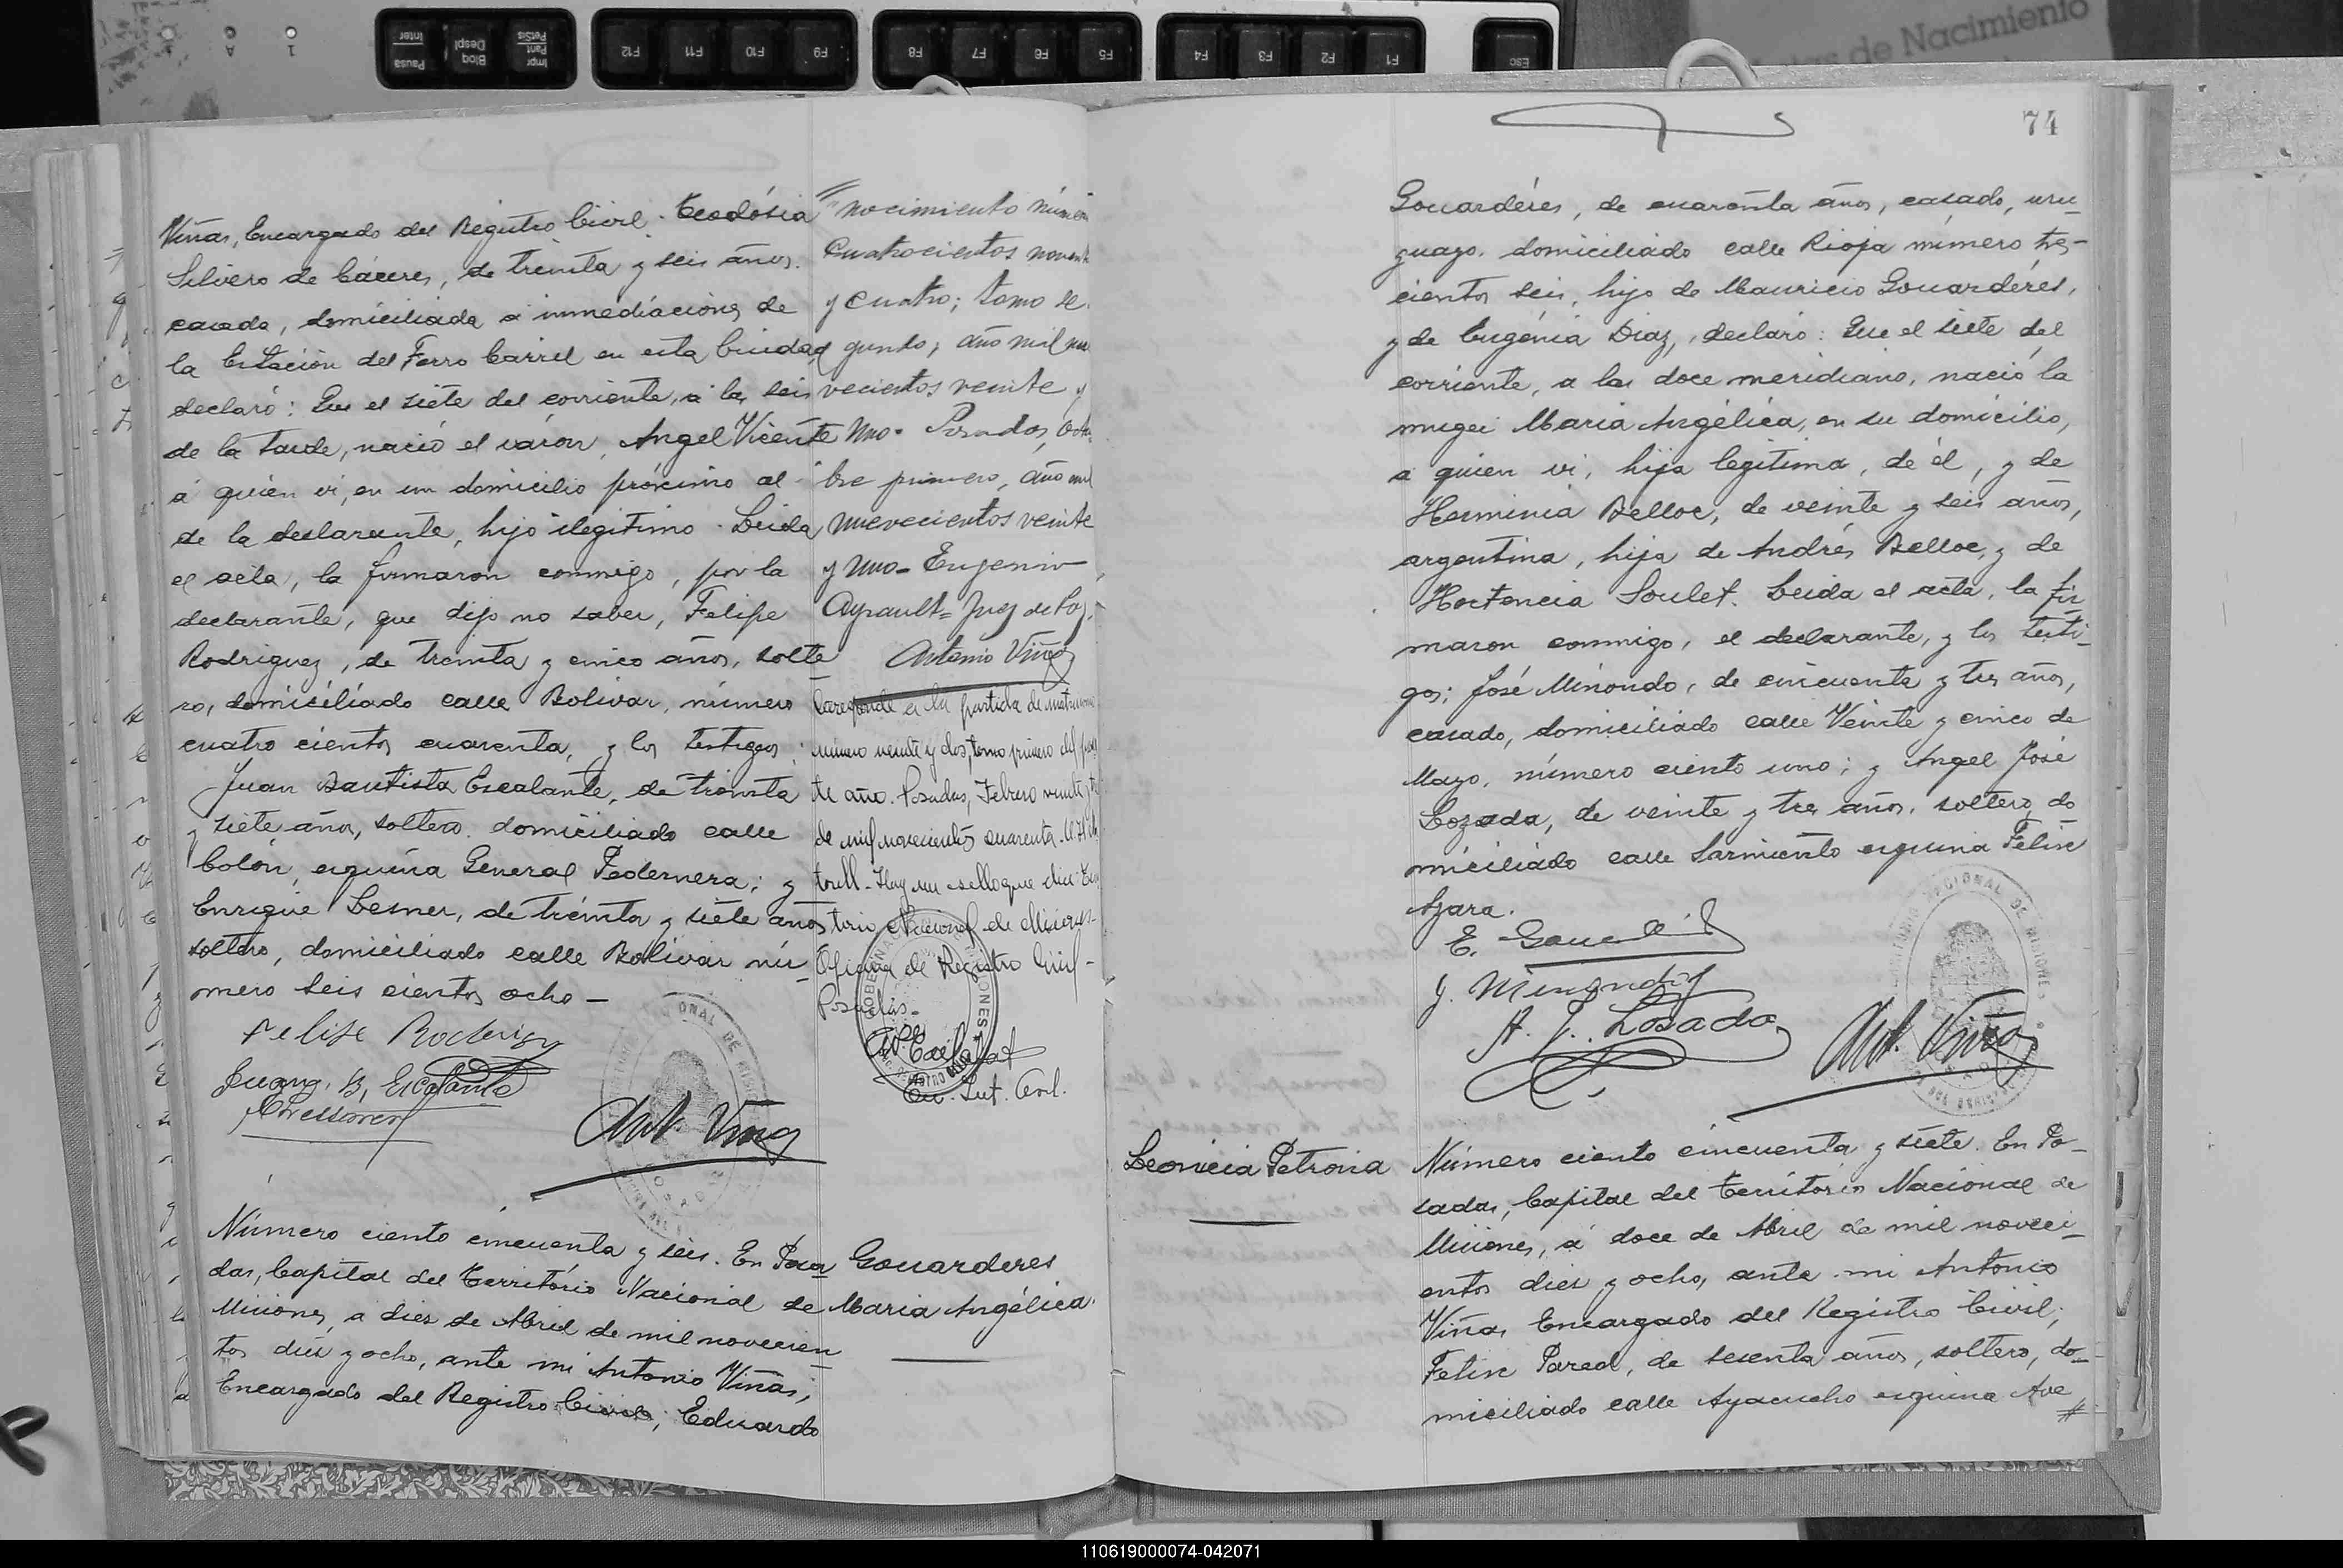 74
Viñas, Encargado del Registro Civil. Teodósia
Silvero de Cáceres, de treinta y seis años.
casada, domiciliada a inmediaciones de
la Estación del Ferro Carril en esta Ciudad
declaró: Que el siete del corriente, a las seis
de la tarde, nació el varon, Angel Vicente
á quien vi, en un domicilio próximo al
de la declarante, hijo ilegitimo. Leida
el acta, la firmaron conmigo, por la
declarante, que dijo no saber, Felipe
Rodriguez, de treinta y cinco años, solte
ro, domiciliado calle Bolivar, número
cuatro cientos cuarenta, y los testigos:
Juan Bautista Escalante, de treinta
y siete años, soltero. domiciliado calle
Colón, esquina General Pedernera; y
Enrique Lesner, de treinta y siete años
soltero, domiciliado calle Bolivar nú
mero seis cientos ocho —
Felipe Rodriguez
Juan B. Escalante
Ant. Viñas
nocimiento número
Cuatrocientos noventa
y cuatro; tomo se
gundo; año mil no
vecientos veinte y
uno. Posadas, Octu
bre primero, año mil
nuevecientos veinte
y uno - Eugenio
Ayrault = Juez de Paz.
Antonio Viñas
Corresponde a la partida de matrimonio
número veinte y dos, tomo primero del
te año. Posadas, Febrero veinte
de mil novecientos cuarenta.
trull - Hay un sello que dice: Terri
torio Nacional de Misiones -
Oficina de Registro Civil -
Posadas -
Número ciento cincuenta y seis. En Posa
das, Capital del Território Nacional de
Misiones, a diez de Abril de mil novecien
tos diez y ocho, ante mi Antonio Viñas;
Encargado del Registro Civil; Eduardo
Gouarderes
Maria Angélica.
Gouardéres, de cuarenta años, casado, uru
guayo. domiciliado calle Rioja número tres-
cientos seis, hijo de Mauricio Gouardéres,
y de Eugénia Diaz, declaró: Que el siete del
corriente, a las doce meridiano, nació la
muger Maria Angélica, en su domicilio,
a quien vi, hija legitima, de él, y de
Herminia Belloc, de veinte y seis años,
argentina, hija de Andrés Belloc, y de
Hortencia Soulet. Leida el acta, la fir
maron conmigo, el declarante, y los testi-
gos; José Minondo, de cincuenta y tres años,
casado, domiciliado calle Veinte y cinco de
Mayo, número ciento uno; y Angel José
Lozada, de veinte y tres años. soltero, do
miciliado calle Sarmiento esquina Felix
Azara.
J. Minondo
A. J. Losada
Ant. Viñas
Leonicia Petrona
Número ciento cincuenta y siete. En Po-
sadas, Capital del Território Nacional de
Misiones, á doce de Abril de mil noveci
entos diez y ocho, ante mi Antonio
Viñas Encargado del Registro Civil;
Felix Pared, de sesenta años, soltero, do-
miciliado calle Ayacucho esquina Ave
110619000074-042071